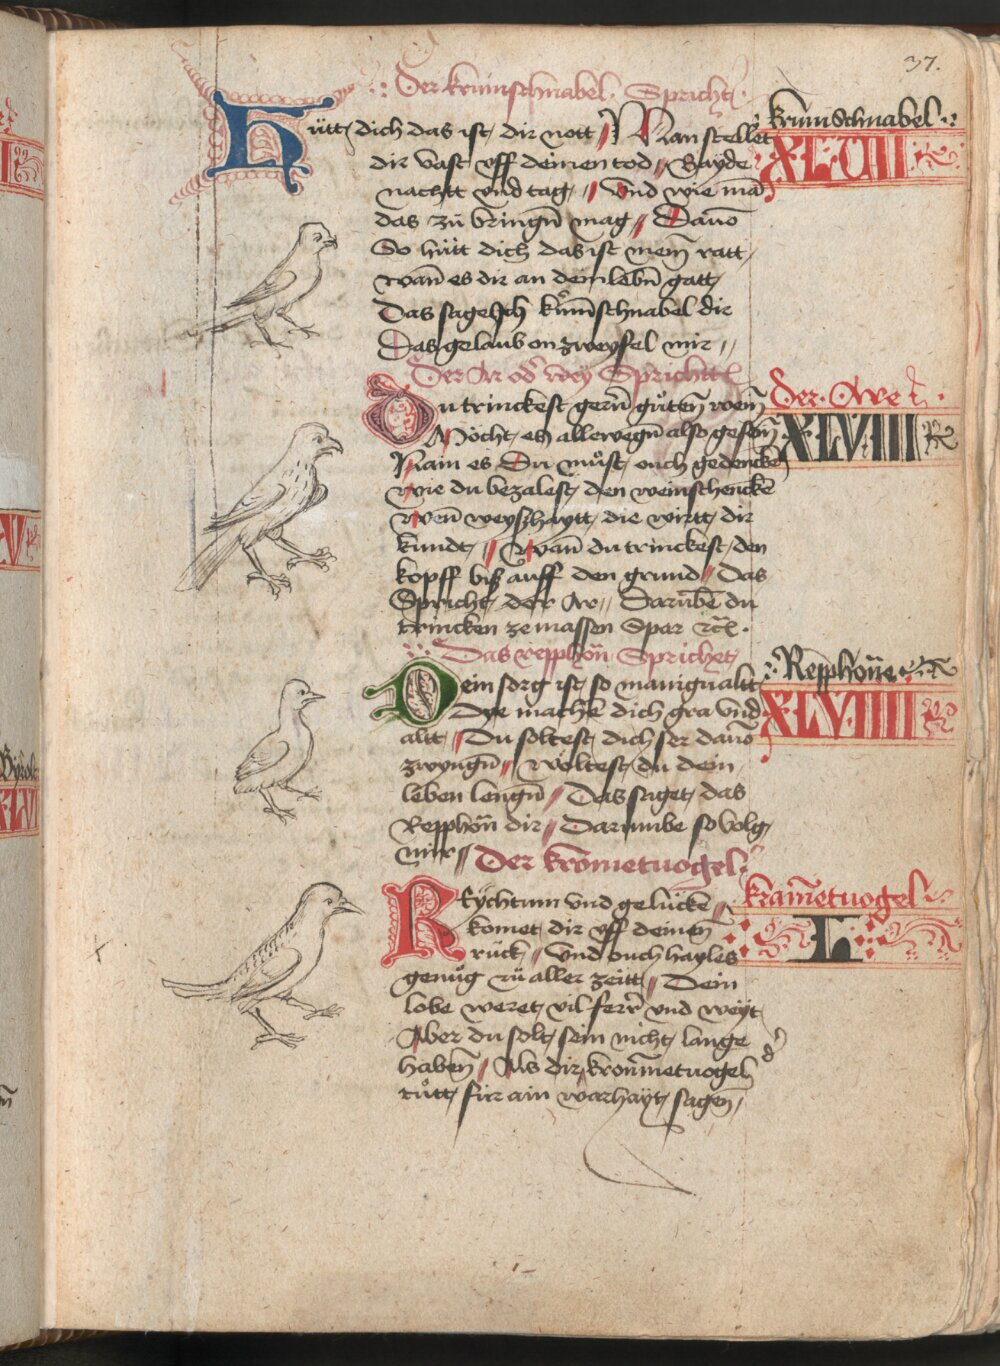 37.
Der krumschnabel. Spricht.
krumschnabel
XLVII
Hütt dich das ist dir nott Man stellet
dir vast vff deinen tod Bayde
nachtt vnd tag Vnd wie mā
das zů bringn̄ mag Dauō
So hütt dich das ist mein ratt
wan̄ es dir an dem lebn̄ gatt
Das sage Jch krūmschnabel dir
Das gelaub on zweyfel mir
Der Ar od wey Sprichtt
Der Are
XLVIII
Du trinckest gern̄ gůten wein
Möcht es allewegn̄ also gesein
Nain es Du můst ouch gedencken
wie du bezalest den weinschencke
Wen̄ weyszhaytt die wirtt dir
kundt Wan̄ du trinckest den
kopff bisz auff den grund Das
Spricht der Are Darūbe du
trincken ze massen Spar
Das repphon̄ Sprichet
Repphon̄e
XLVIIII
Dein sorg ist so manigualtt
Dye machē dich gra vnd
altt Du soltest dich ser dauō
zwyngn̄ Woltest du dein
leben lengn̄ Das saget das
Repphon̄ dir Darumbe so volg
mir Der krōmetuogel
kram̄etuogel
L
Rychtum vnd gelücke
komet dir vff deinen
rück Vnd ouch hayles
genůg zů aller zeitt Dein
lobe weret vil ferr̄ vnd weyt
Aber du solt sein nicht lange
haben̄ Als dir kron̄metuogel
tůtt für ain warhayt sagen̄